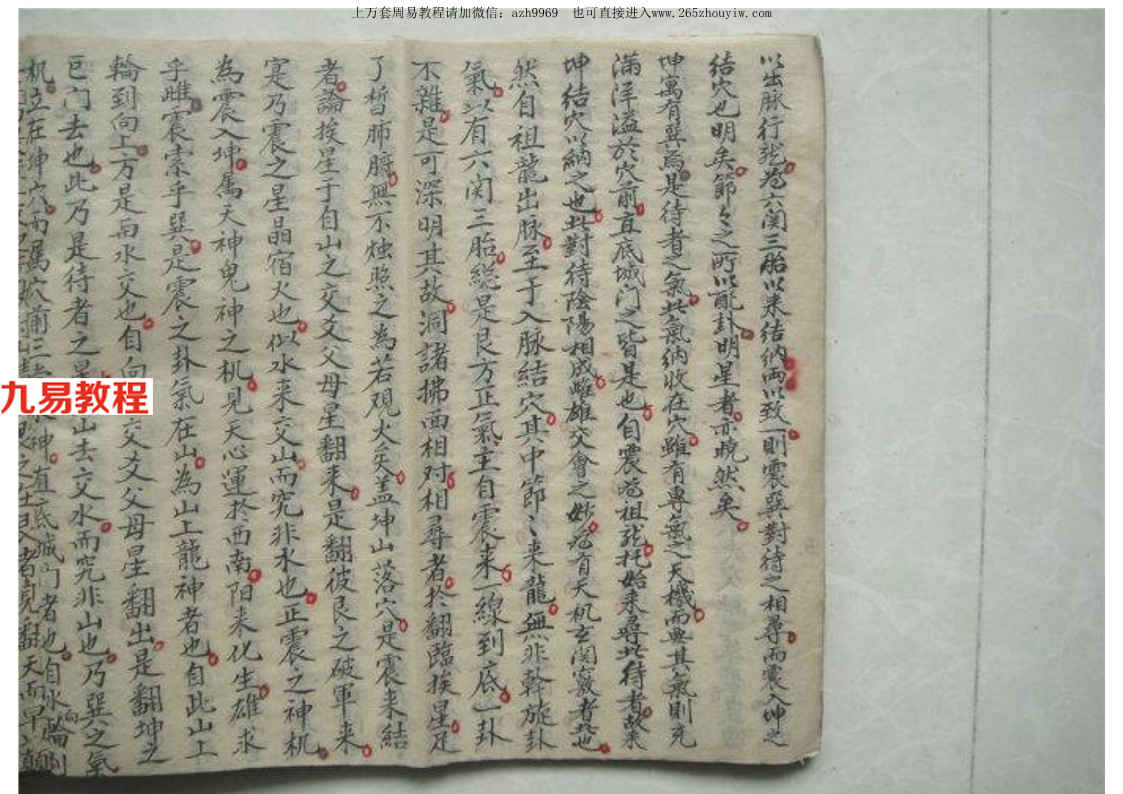 上万套周易教程请加微信：azh9969　也可直接进入www.265zhouyiw.com
以出脉行龙为六関三胎以来结纳両以致一則震巽對待之相尋而震入坤之
结穴也明矣節々之所以配卦明星者亦晩然矣
坤寓有巽爲是待者之氣此氣纳收在穴雖有專氣之天機而無其氣則充
滿洋溢於穴前直底城门之皆是也自震為祖龙托始来尋此待者故来
坤结穴以納之也此對待陰陽相成雌雄交會之妙為有天机玄関竅者也
然自祖龍出脉至于入脉结穴其中節々来龍無非幹旋卦
氣以有六関三胎總是艮方正氣主自震来一線到底一卦
不雜是可深明其故洞諸拂面相对相尋者於翻臨挨星足
了皙肺腑無不烛照之為若观火矣盖坤山落穴是震来結
者論挨星于自山之交爻父母星翻来是翻彼艮之破軍来
寔乃震之星晶宿火也似水来交山而究非水也正震之神机
為震入坤属天神鬼神之机見天心運於西南阳来化生雄求
乎雌震索乎巽是震之卦氣在山為山上龍神者也自此山上
輪到向上方是両水交也自向交爻父母星翻出是翻坤之
巨门去也此乃是待者之星山去交水而究非山也乃巽之氣
机立在坤穴而属穴前三神直底城门者也自水輪到
九易教程